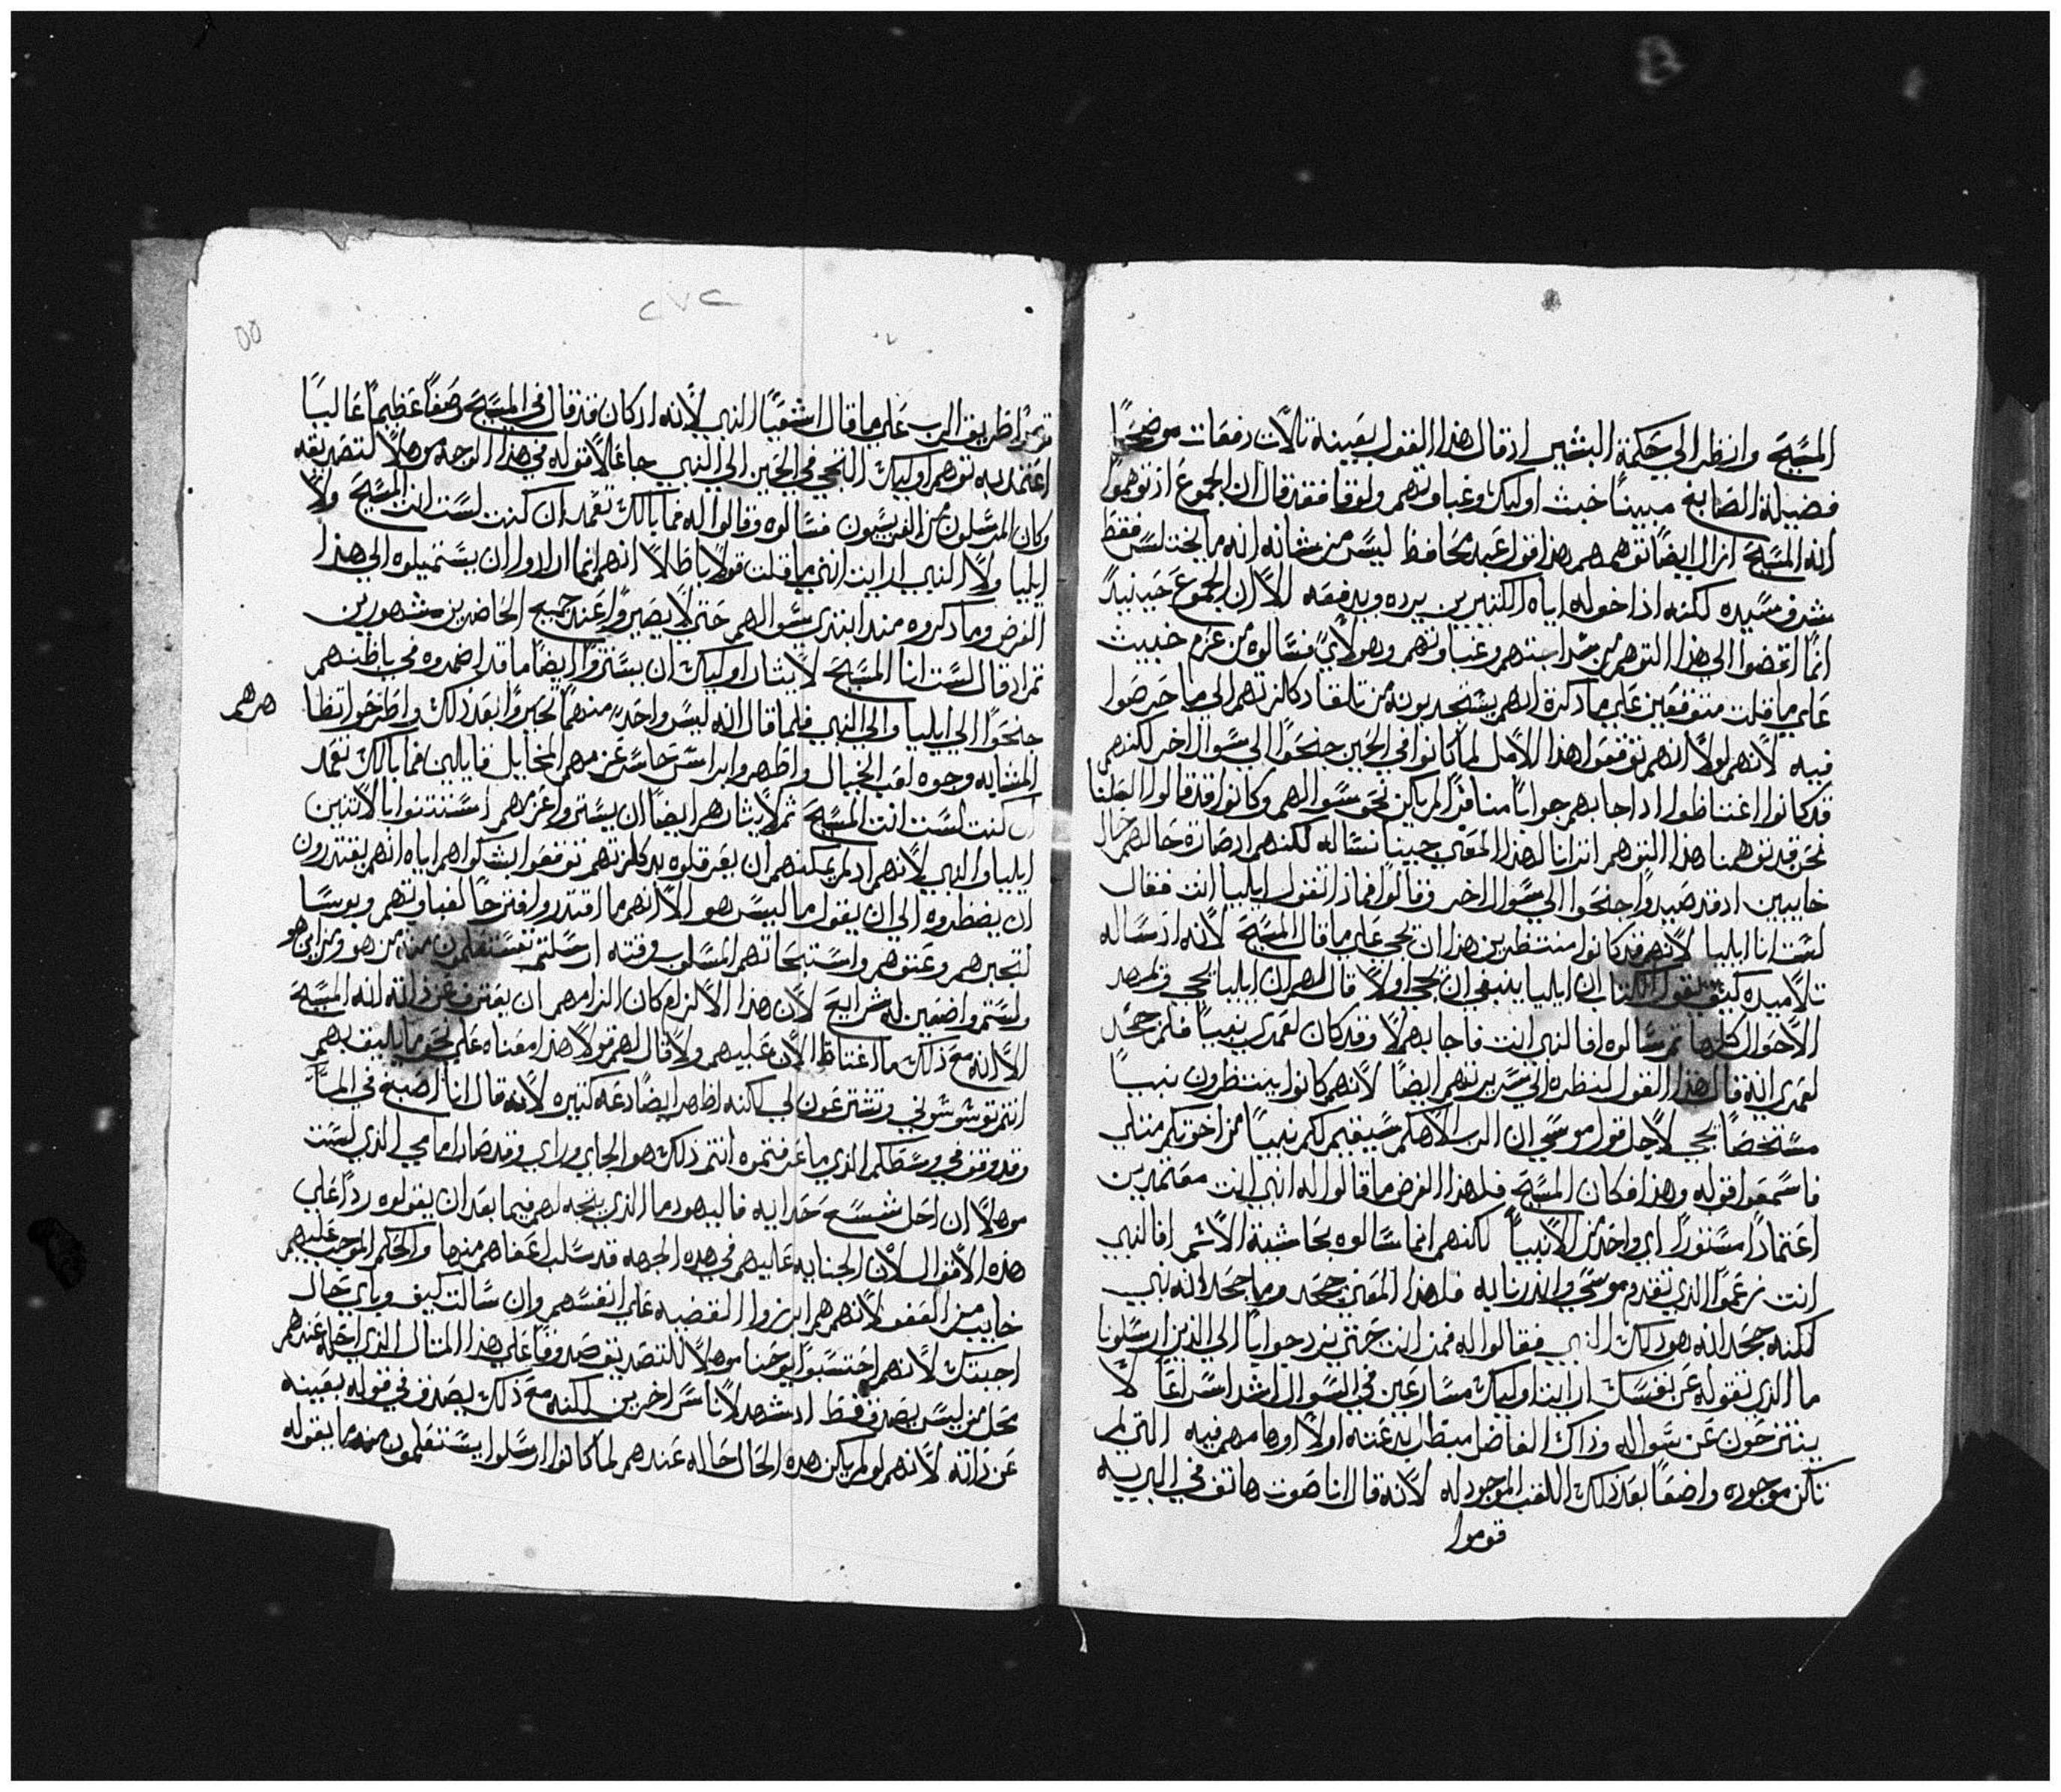 المسَّيحَ وانظر الي حَكمة البشير اذ قال هذا القول بعَينه ثالاث دفعَات موضحًا
فضيلة الصَابغ مبينًا خبث اوليك وغباوتهم ولوقا فقد قال ان الجموع اذ توهموا
انه المسَّيحَ ازال ايضًا توهمهم هذا قول عَبد محَافظ ليسَّ من شانه انه ما يختلسَّ فقط
شرف سَّيده لكنه اذا خوله اياه الكثيرين يرده ويدفعَه الاَّ ان الجموع حَينيذٍ
انما افضوا الي هذا التوهم من سَّداجتهم وغباوتهم وهولاَي فسَّالوه من عَزم خبيث
عَلي ما قلت متوقعَين عَلي ما ذكرة انهم يسَّتجدبونه من تلقا دكالزتهم الي ما حَرصَوا
فيه لاَنهم لولاَ انهم توقعَوا هذا الاَمل لما كانوا في الحَين جنحَوا الي سَّوال اخر لكنهم
قد كانوا اغتاظوا اذا اجابهم جوابًا منافرًا لم يكن نحَو سَّوالهم وكانوا قد قالوا العَلنا
نحَن قد توهمنا هذا التوهم اترانا لهذا المعَني جينا نسَّاله لكنهم اذ صَارة حَالهم حَال
خايبين اذ قد صَيدوا جنحَوا الي سَّوال اخر وقالوا فماذا تقول ايليا انت فقال
لسَّت انا ايليا لاَنهم قد كانوا منتظرين هذا ان يجي عَلي ما قال المسَّيحَ لاَنه اذ سَّاله
تلاميده كيف تقول الكتاب ان ايليا ينبغي ان يجي اولاً قال لهم ان ايليا يجي ويمهد
الاَحَوال كلها ثم سَّالوه افالنبي انت فاجابهم لاَ وقد كان لعَمري نبيًا فلم جحَد
لعَمري انه قال هذا القول لينظره الي سَّريرتهم ايضًا لاَنهم كانوا ينتظرون نبيًا
مسَّتخصًا يجي لاَجل قول موسَّي ان الرب الاَهكم سَّيقيم لكم نبيًا من اخوتكم مثلي
فاسَّمعَوا قوله وهذا فكان المسَّيحَ فلهذا الغرض ما قالوا له انبي انت معَتمدين
اعَتمادًا مسَّتورًا اي واحَد من الاَنبيا لكنهم انما سَّالوه بحَاشية الاَسَّم افالنبي
انت زعَموا الذي تقدم موسَّي وانذرنا به فلهذا المعَني جحَد وما جحَد انه نبي
لكنه جحَد انه هو ذلك النبي فقالوا له فمن انت حَتي نرد جوابًا الي الذين ارسَّلونا
ما الذي تقوله عَن نفسَّك ارايت اوليك مسَّارعَين في السَّوال اشد اسَّراعًا لاَ
ينتزحَون عَن سَّواله وذاك الفاضل مبطل بدعَته اولاً اوهامهم فيه التي لم
تكن موجوده واضعًا بعَد ذلك اللقب الموجود له لاَنه قال انا صَوت هاتف في البريه
قوموا
٢٧٢
٥٥
قوموا طريق الرب عَلي ما قال اشعَيا النبي لاَنه اذ كان قد قال في المسَّيحَ وصَفًا عَظيمًا عَاليًا
اعَتمد به توهم اوليك التجي في الحَين الي النبي جاعَلاً قوله في هذا الوجه موهلاً لتصَديقه
وكان المرسَّلون من الفريسَّيون فسَّالوه وقالوا له فما بالك تعَمد ان كنت لسَّت انت المسَّيحَ ولاَ
ايليا ولاَ النبي ارايت انني ما قلت قولاً باطلاً انهم انما ارادوا ان يسَّتميلوه الي هذا
الغرض وما ذكروه مند ابتدي سَّوالهم حَتي لاَ يصَيروا عَند جميع الحَاضرين مشهورين
ثم اذ قال لسَّت انا المسَّيحَ لاَ يثار اوليك ان يسَّتروا ايضًا ما قد اضمروه في باطنهم
جنحَوا الي ايليا والي النبي فلما قال انه ليسَّ واحَد منهما تحَيروا بعَد ذلك واطرحَوا تظا
هرهم
المتشابه وجوه لعَب الخيال واظهروا براسَّ حَاسَّر عَزمهم المخايل قايلين فما بالك تعَمد
ان كنت لسَّت انت المسَّيحَ ثم لاَ يثارهم ايضًا ان يسَّتروا عَزمهم اسَّتثنوا بالاَثنين
ايليا والنبي لاَنهم اذ لم يمكنهم ان يعَرقلوه بدكلزتهم توقعَوا بشكواهم اياه انهم يقتدرون
ان يضطروه الي ان يقول ما ليسَّ هو الاَّ انهم ما اقتدروا فتزحًا لغباوتهم وبوسًَّا
لتجبرهم وعَتوهم واسَّتبحَاثهم المسَّلوب وقته ارسَّلتم تسَّتعَلمون منه من هو ومن اين هو
ولسَّتم واضعَين له شرايعَ لاَن هذا الاَلزام كان الزامهم ان يعَترف عَن ذاته انه المسَّيحَ
الاَّ انه معَ ذلك ما اغتاظ الاَن عَليهم ولاَ قال لهم قولاً هذا معَناه عَلي نحَو ما يليق بهم
انتم توشوشوني وتشترعَون لي لكنه اظهر ايضًا دعَه كثيره لاَنه قال انا اصَبغ في الما
وقد وقف في وسَّطكم الذي ما عَرفتموه انتم ذلك هو الجاي وراي وقد صَار امامي الذي لسَّت
موهلاً ان احَل شسَّعَ حَدايه فاليهود ما الذي يتجه لهم فيما بعَد ان يقولوه ردًا عَلي
هذه الاَقوال لاَن الجنايه عَليهم في هذه الجهه قد سَّلب اعَفاهم منها والحَكم الموجب عَليهم
خايب من العَفو لاَنهم هم ابرزوا القضيه عَلي انفسَّهم وان سَّالت كيف وباي حَال
اجبتك لاَنهم احَتسَّبوا يوحَنا موهلاً للتصَديق صَدوقًا عَلي هذا المثال الذي احَله عَندهم
محَل من ليسَّ يصَدق فقط اذ شهد لاَناسَّ اخرين لكنه معَ ذلك يصَدق في قوله بعَينه
عَن ذاته لاَنهم لو لم يكن هذه الحَال حَاله عَندهم لما كانوا ارسَّلوا يسَّتعَلمون منه ما يقوله